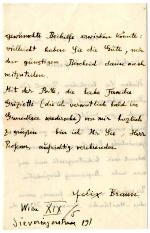 gewünschte Behelfe erwirken könnte:
vielleicht haben Sie die Güte, mir
bei günstigem Bescheid davon auch
mitzuteilen.
Mit der Bitte, die liebe Familie
(die ich vermutlich bald im
) von mir herzlich
zu grüßen bin ich Ihr Sie, Herr
Professor, aufrichtig verehrender
Felix Braun
Wien XIX/5
Sieveringerstrasse 191